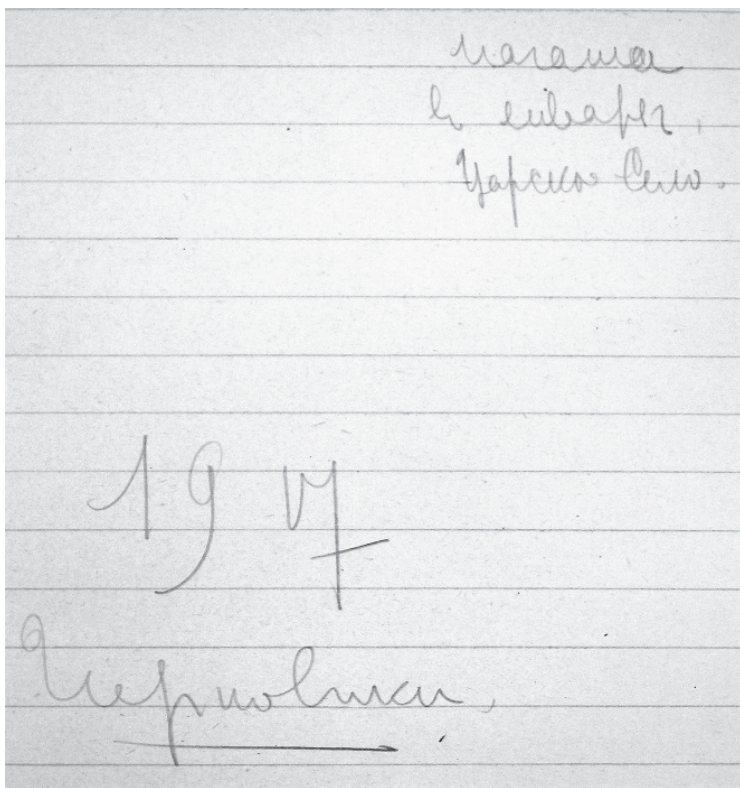 начата
въ январѣ,
Царское Село.
19 17
Черновики.